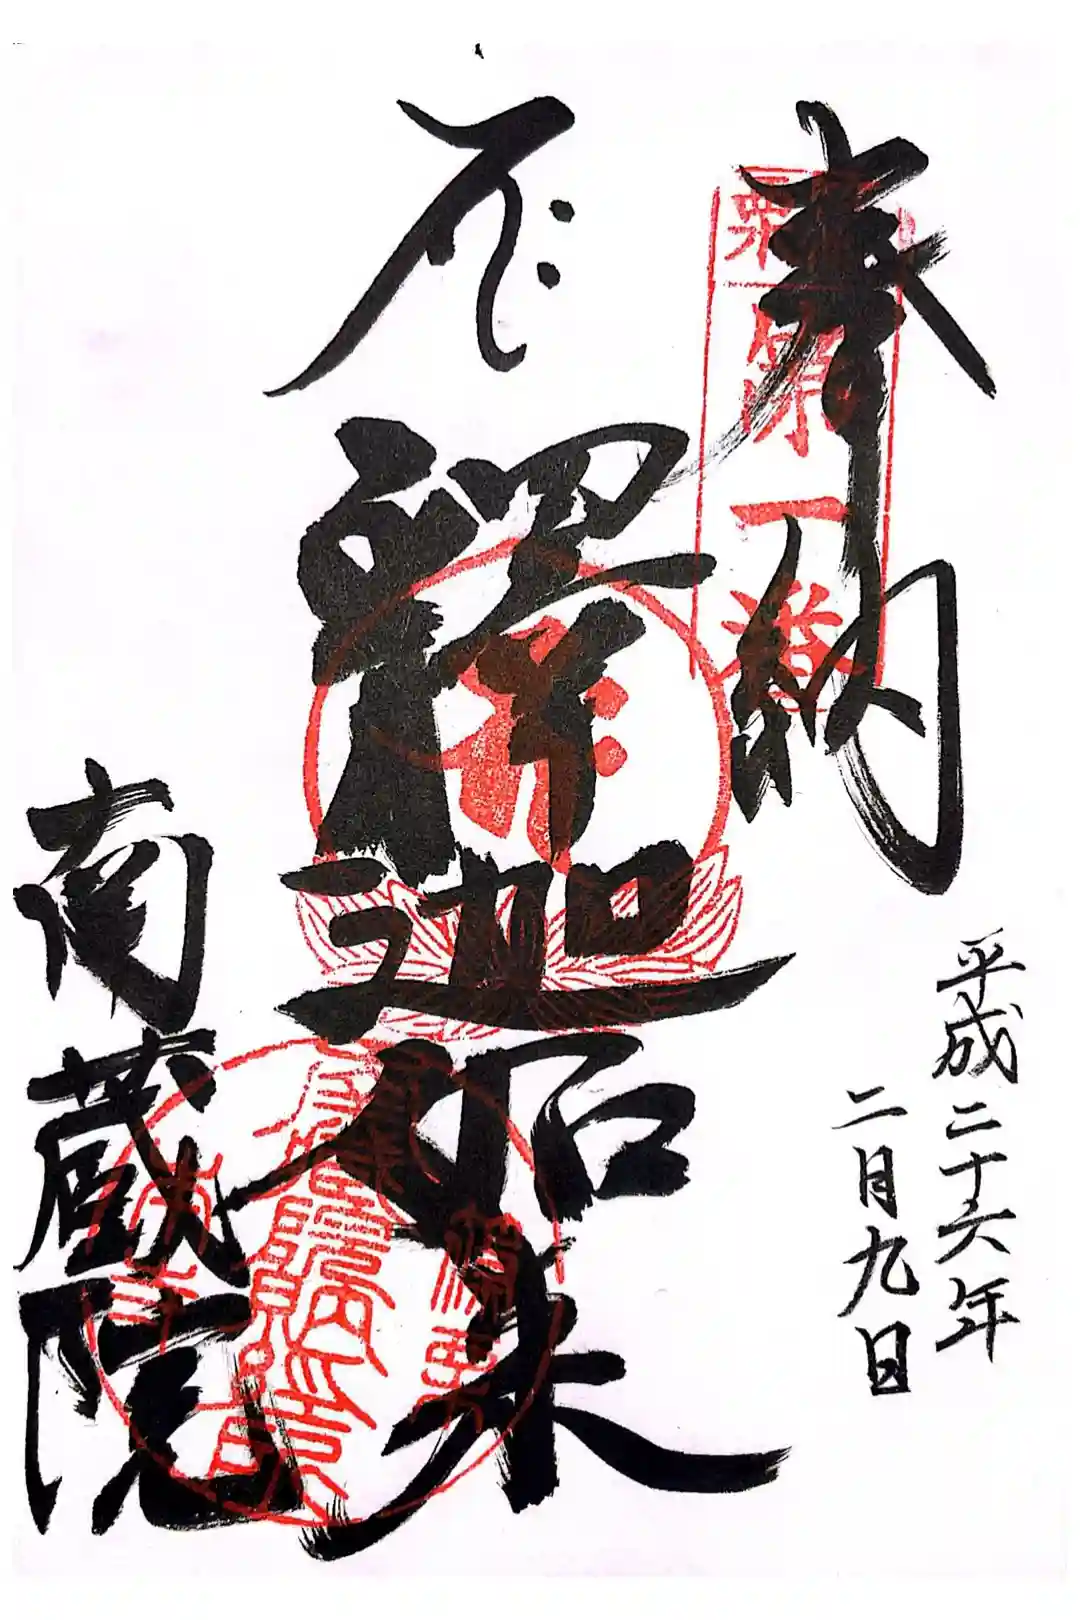 奉納
粟
第一番
平成二十六年
二月九日
釋迦如来
南蔵院